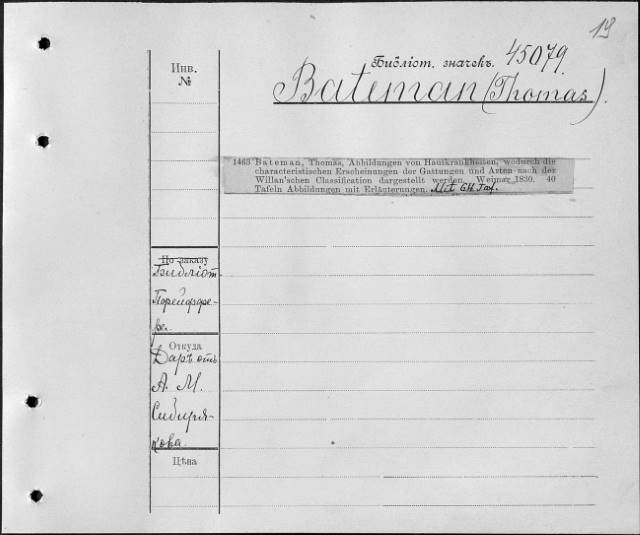 19
Библіот. значекъ. 45079.
Bateman (Thomas).
Инв.
№
1463 Bateman, Thomas, Abbildungen von Hautkrankheiten, wodurch die
characteristischen Erscheinungen der Gattungen und Arten nach der
Willan'schen Classification dargestellt werden. Weimar 1830. 40
Tafeln Abbildungen mit Erläuterungen. Mit
По заказу
Библіот.
Откуда
Даръ отъ
А. М.
Сибиря-
кова.
Цѣна